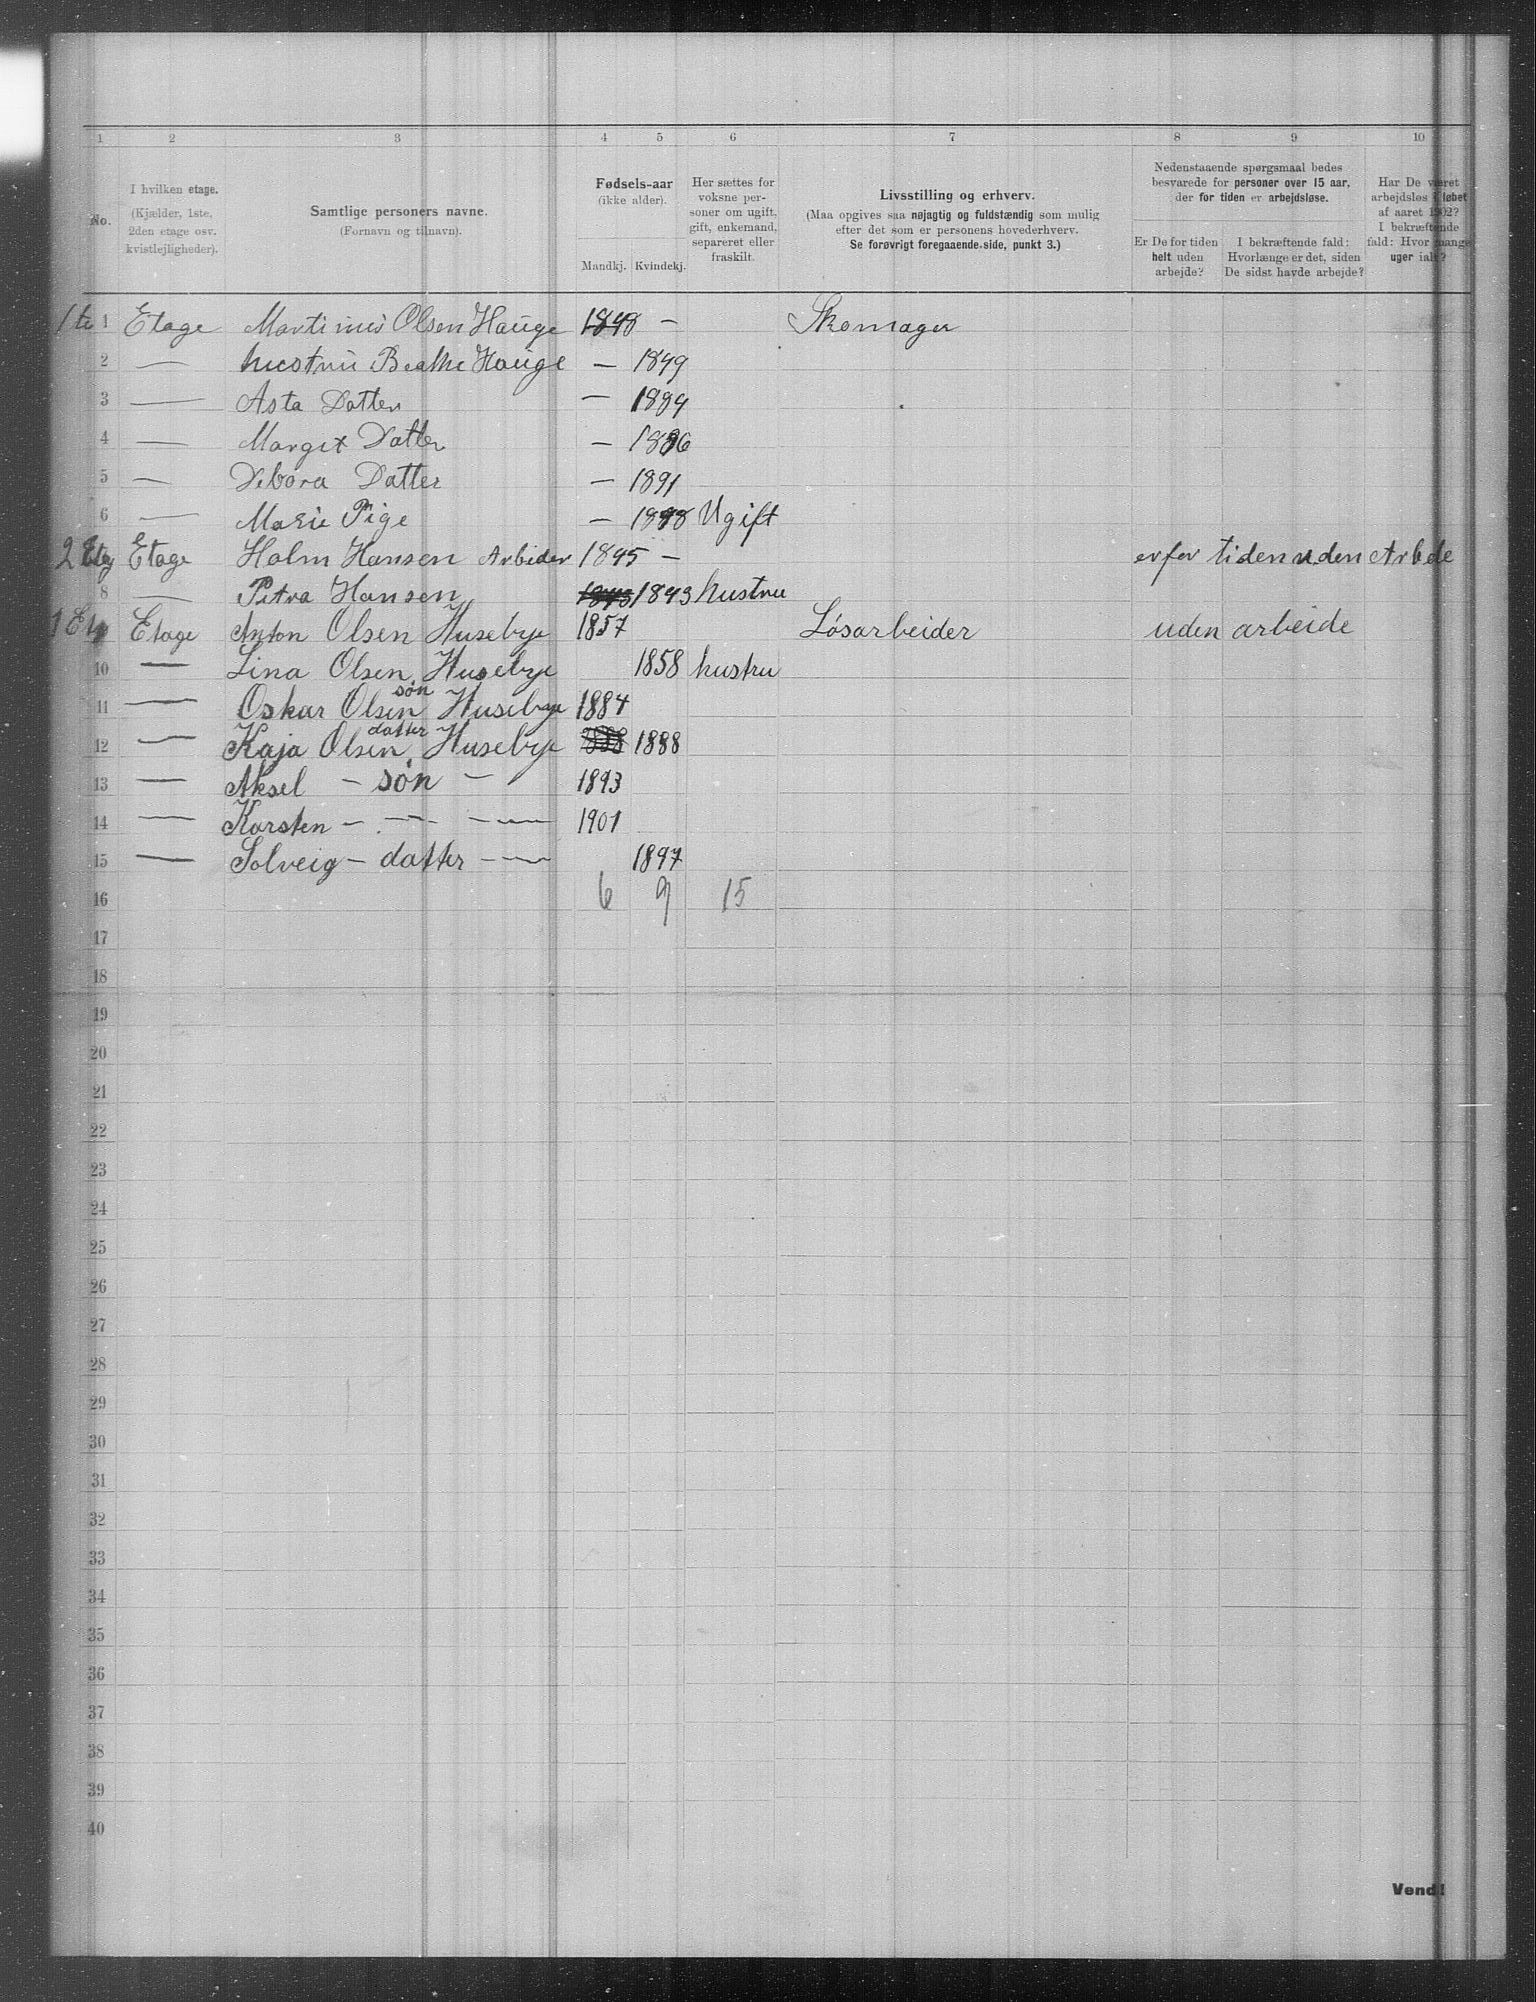 1 2 3 4 5 6 7 8 9 10
No.
I hvilken etage.
(Kjælder, 1ste,
2den etage osv.
kvistlejligheder).
Samtlige personers navne.
(Fornavn og tilnavn).
Fødsels-aar
(ikke alder).
Mandkj. Kvindekj.
Her sættes for
voksne per-
soner om ugift,
gift, enkemand,
separeret eller
fraskilt.
Livsstilling og erhverv.
(Maa opgives saa nøjagtig og fuldstændig som mulig
efter det som er personens hovederhverv.
Se forøvrigt foregaaende side, punkt 3.)
Nedenstaaende spørgsmaal bedes
besvarede for personer over 15 aar,
der for tiden er arbejdsløse.
Er De for tiden
helt uden
arbejde?
I bekræftende fald:
Hvorlænge er det, siden
De sidst havde arbejde?
Har De været
arbejdsløs i løbet
af aaret 1902?
I bekræftende
fald: Hvor mange
uger ialt?
1te 1 Etage Martinus Olsen Hauge 1848 — Skomager
2 — hustru Beathe Hauge — 1849
3 — Asta Datter — 1889
4 — Margit Datter — 1886
5 — Debora Datter — 1891
6 — Marie Pige — Ugift
2 Etg Etage Holm Hansen Arbeider 1845 — er for tiden uden Arbede
8 — Petra Hansen 1843 1843 hustru
1 Etg Etage Anton Olsen Husebye 1857 Løsarbeider uden arbeide
10 — Lina Olsen Husebye 1858 hustru
11 — Oskar Olsen søn Husebye 1884
12 — Kaja Olsen datter Husebye 1888
13 — Aksel — søn — 1893
14 — Karsten — — — 1901
15 — Solveig — datter — 1897
16 6 9 15
17
18
19
20
21
22
23
24
25
26
27
28
29
30
31
32
33
34
35
36
37
38
39
40
Vend!